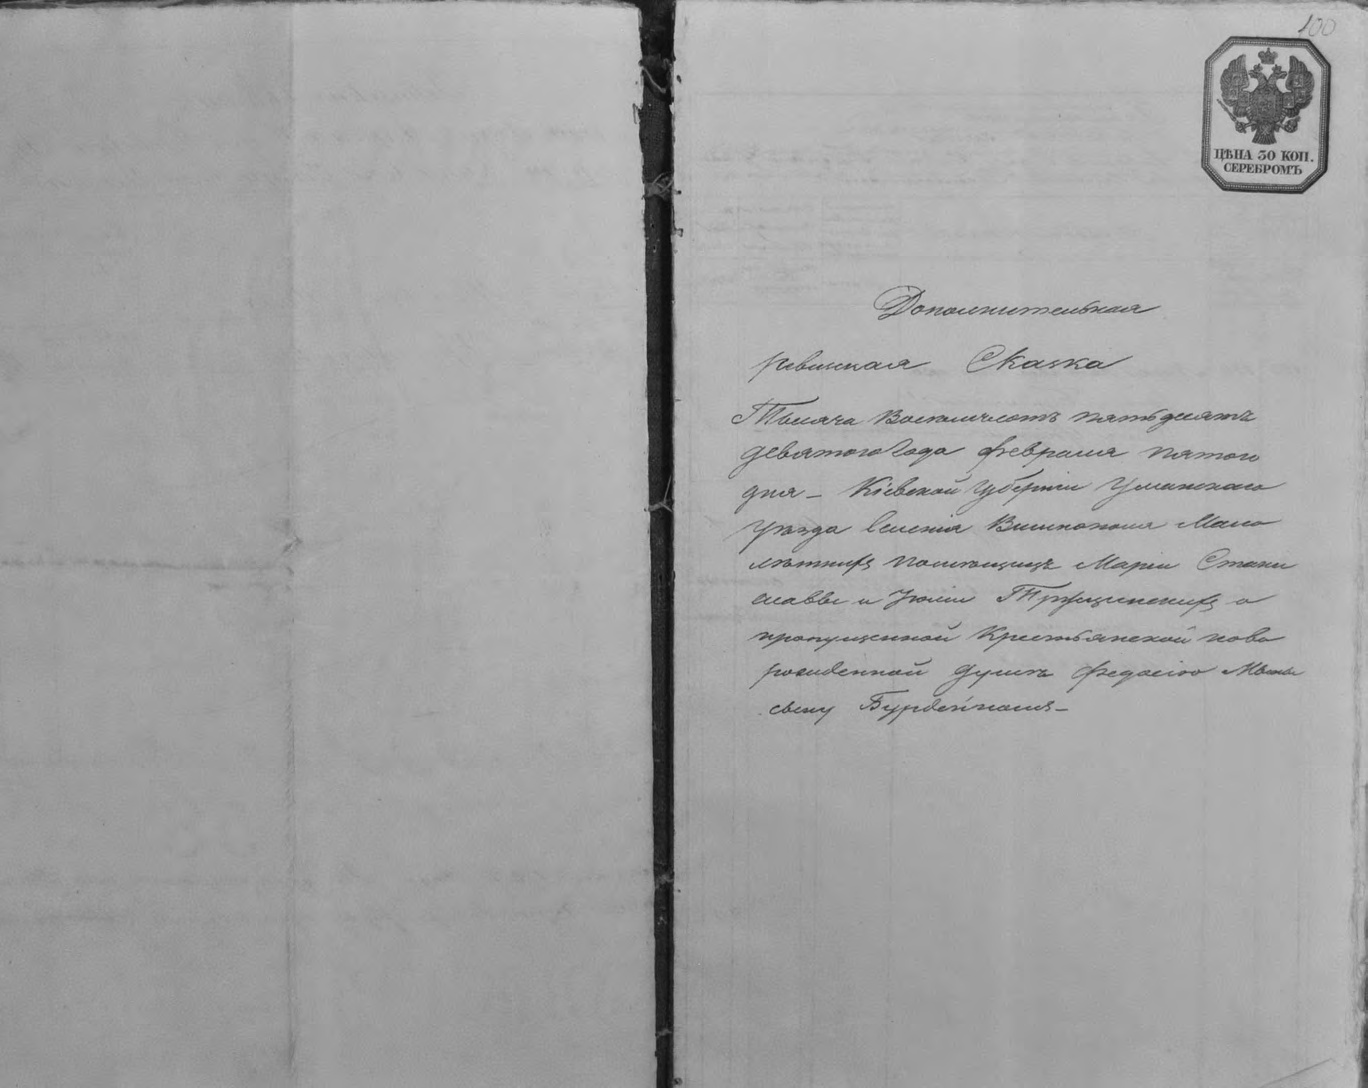 100
ЦѢНА 30 КОП.
СЕРЕБРОМЪ
Дополнительная
ревизская Сказка
Тысяча Восемьсотъ пятьдесятъ
девятого Года февраля пятого
дня – Кіевской Губерніи Уманскаго
уѣзда Селенія Вишнополя Мало
лѣтнихъ помѣщицъ Маріи Стани
славы и Юліи Тржцинскихъ о
пропущенной Крестьянской ново
рожденной душѣ Федосію
Бурдейномъ –